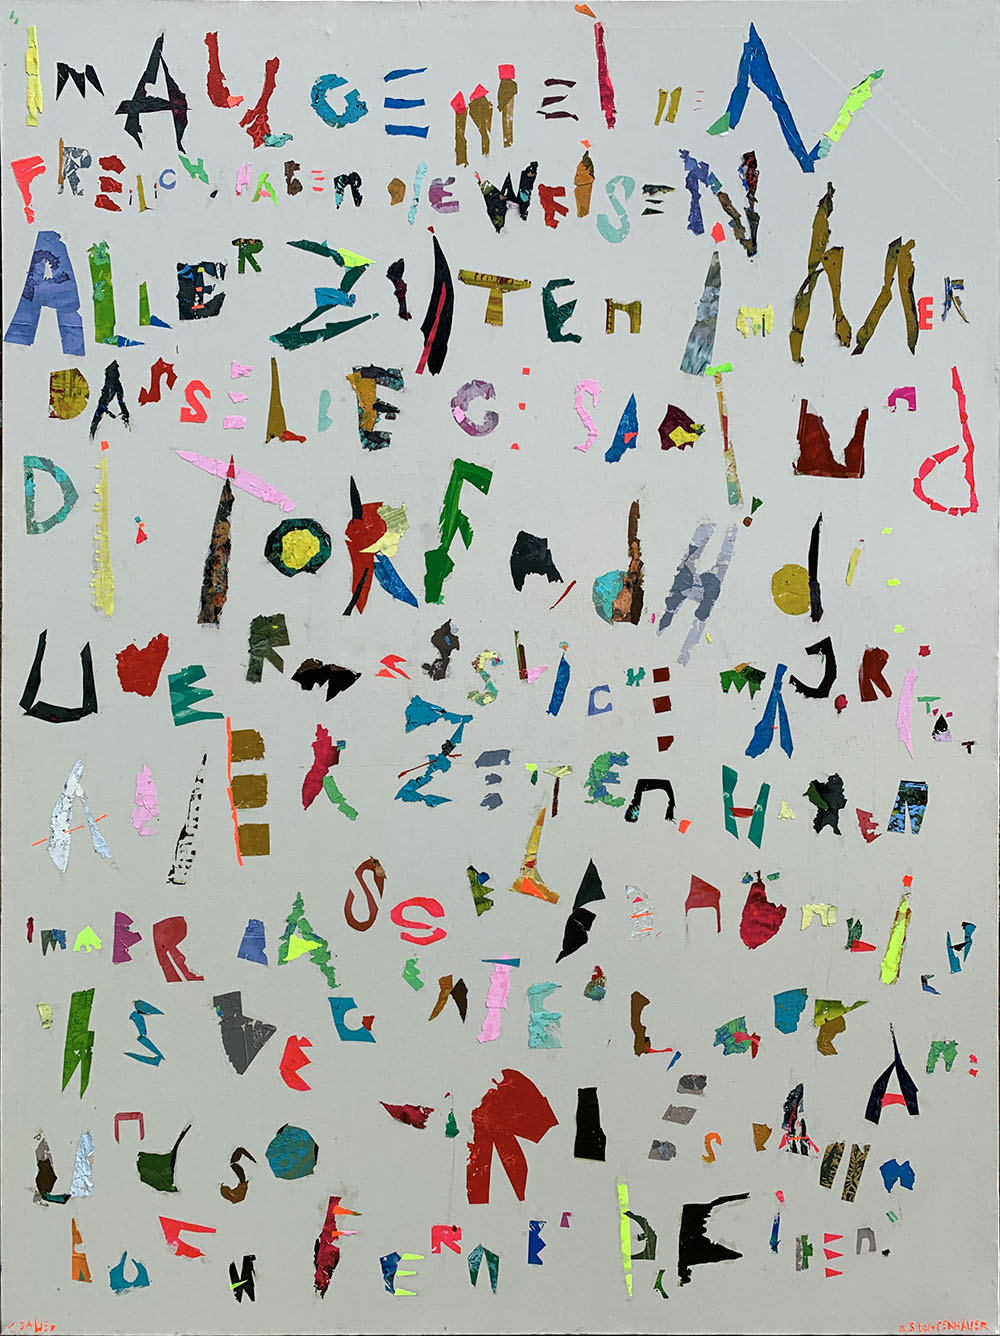 Im ALLGEMEINEN
FREILICH HABEN DIE WEISEN
ALLER ZEITEN ImMER
DASSELBE GESAGT UnD
DIE TOREN, d.H. DIE
UNERMESSLICHE MAJORITÄT
ALLER ZEITEN, HABEN
ImMER DASSELBE NÄMLICH
GEGENTEIL GETAN:
UnD SO WIRD ES DANN
AUCH FERNER BLEIBEN.
SAUER A. SCHOPENHAUER